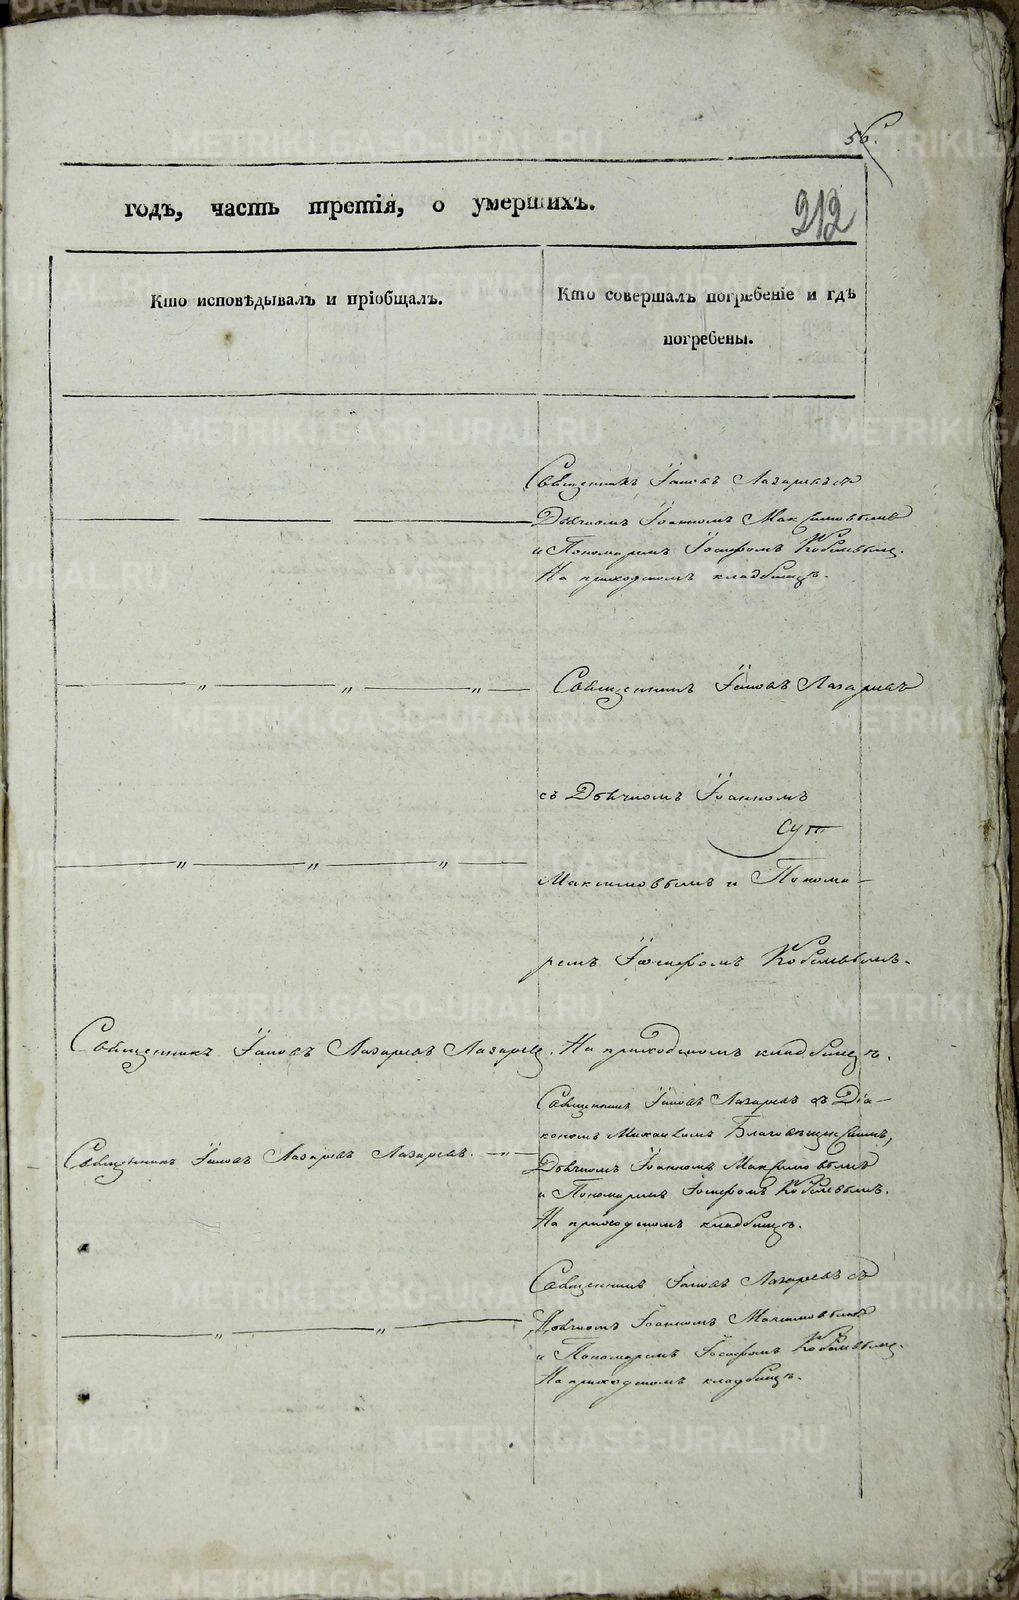 56.
годъ, часть третія, о умершихъ.
212
Кто исповѣдывалъ и пріобщалъ.
Кто совершалъ погребеніе и гдѣ
погребены.
Священникъ Іаковъ Лазаревъ съ
Дьячкомъ Іоанномъ Максимовымъ
и Пономаремъ Іосифомъ
На приходскомъ кладбищѣ.
Священникъ Іаковъ Лазаревъ
съ Дьячкомъ Іоанномъ
Максимовымъ и Понома-
ремъ Іосифомъ
Священникъ Іаковъ Лазаревъ Лазаревъ.
На приходскомъ кладбищѣ.
Священникъ Іаковъ Лазаревъ съ Діа-
кономъ Михаиломъ Благовѣщенскимъ,
Священникъ Іаковъ Лазаревъ Лазаревъ.
Дьячкомъ Іоанномъ Максимовымъ
и Пономаремъ Іосифомъ
На приходскомъ кладбищѣ.
Священникъ Іаковъ Лазаревъ съ
Дьячкомъ Іоанномъ Максимовымъ
и Пономаремъ Іосифомъ
На приходскомъ кладбищѣ.
METRIKI.GASO-URAL.RU